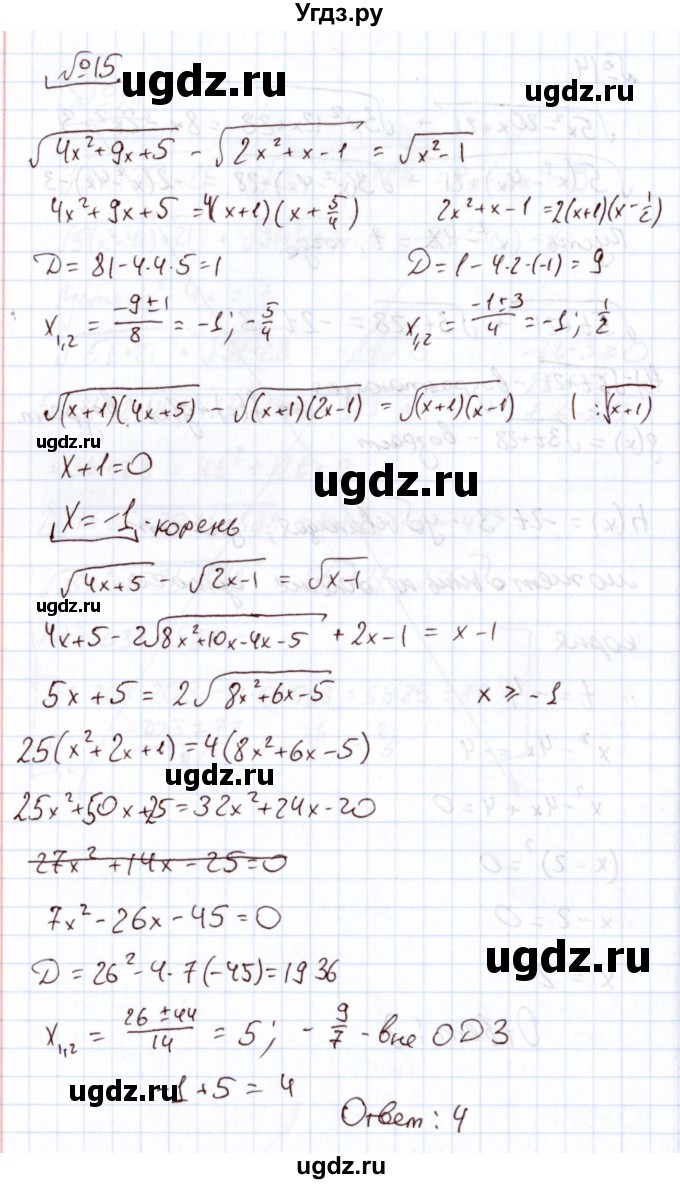 Угдз.ру
№15
ugdz.ru
√(4x²+9x+5) - √(2x²+x-1) = √(x²-1)
4x²+9x+5 = 4(x+1)(x+5/4)
2x²+x-1 = 2(x+1)(x-1/2)
D = 81-4·4·5=1
D = 1-4·2·(-1) = 9
x₁,₂ = (-9±1)/8 = -1; -5/4
x₁,₂ = (-1±3)/4 = -1; 1/2
√((x+1)(4x+5)) - √((x+1)(2x-1)) = √((x+1)(x-1)) | :√(x+1)
ugdz.ru
x+1=0
ugdz.ru
x=-1 - корень
√(4x+5) - √(2x-1) = √(x-1)
ugdz.ru
4x+5-2√(8x²+10x-4x-5) + 2x-1 = x-1
5x+5 = 2√(8x²+6x-5)
x ≥ -1
25(x²+2x+1)=4(8x²+6x-5)
ugdz.ru
25x²+50x+25=32x²+24x-20
27x²+14x-25=0
7x²-26x-45=0
ugdz.ru
D=26²-4·7(-45)=1936
x₁,₂ = (26±44)/14 = 5; -9/7 - вне ОДЗ
ugdz.ru
-1+5=4
Ответ: 4
ugdz.ru